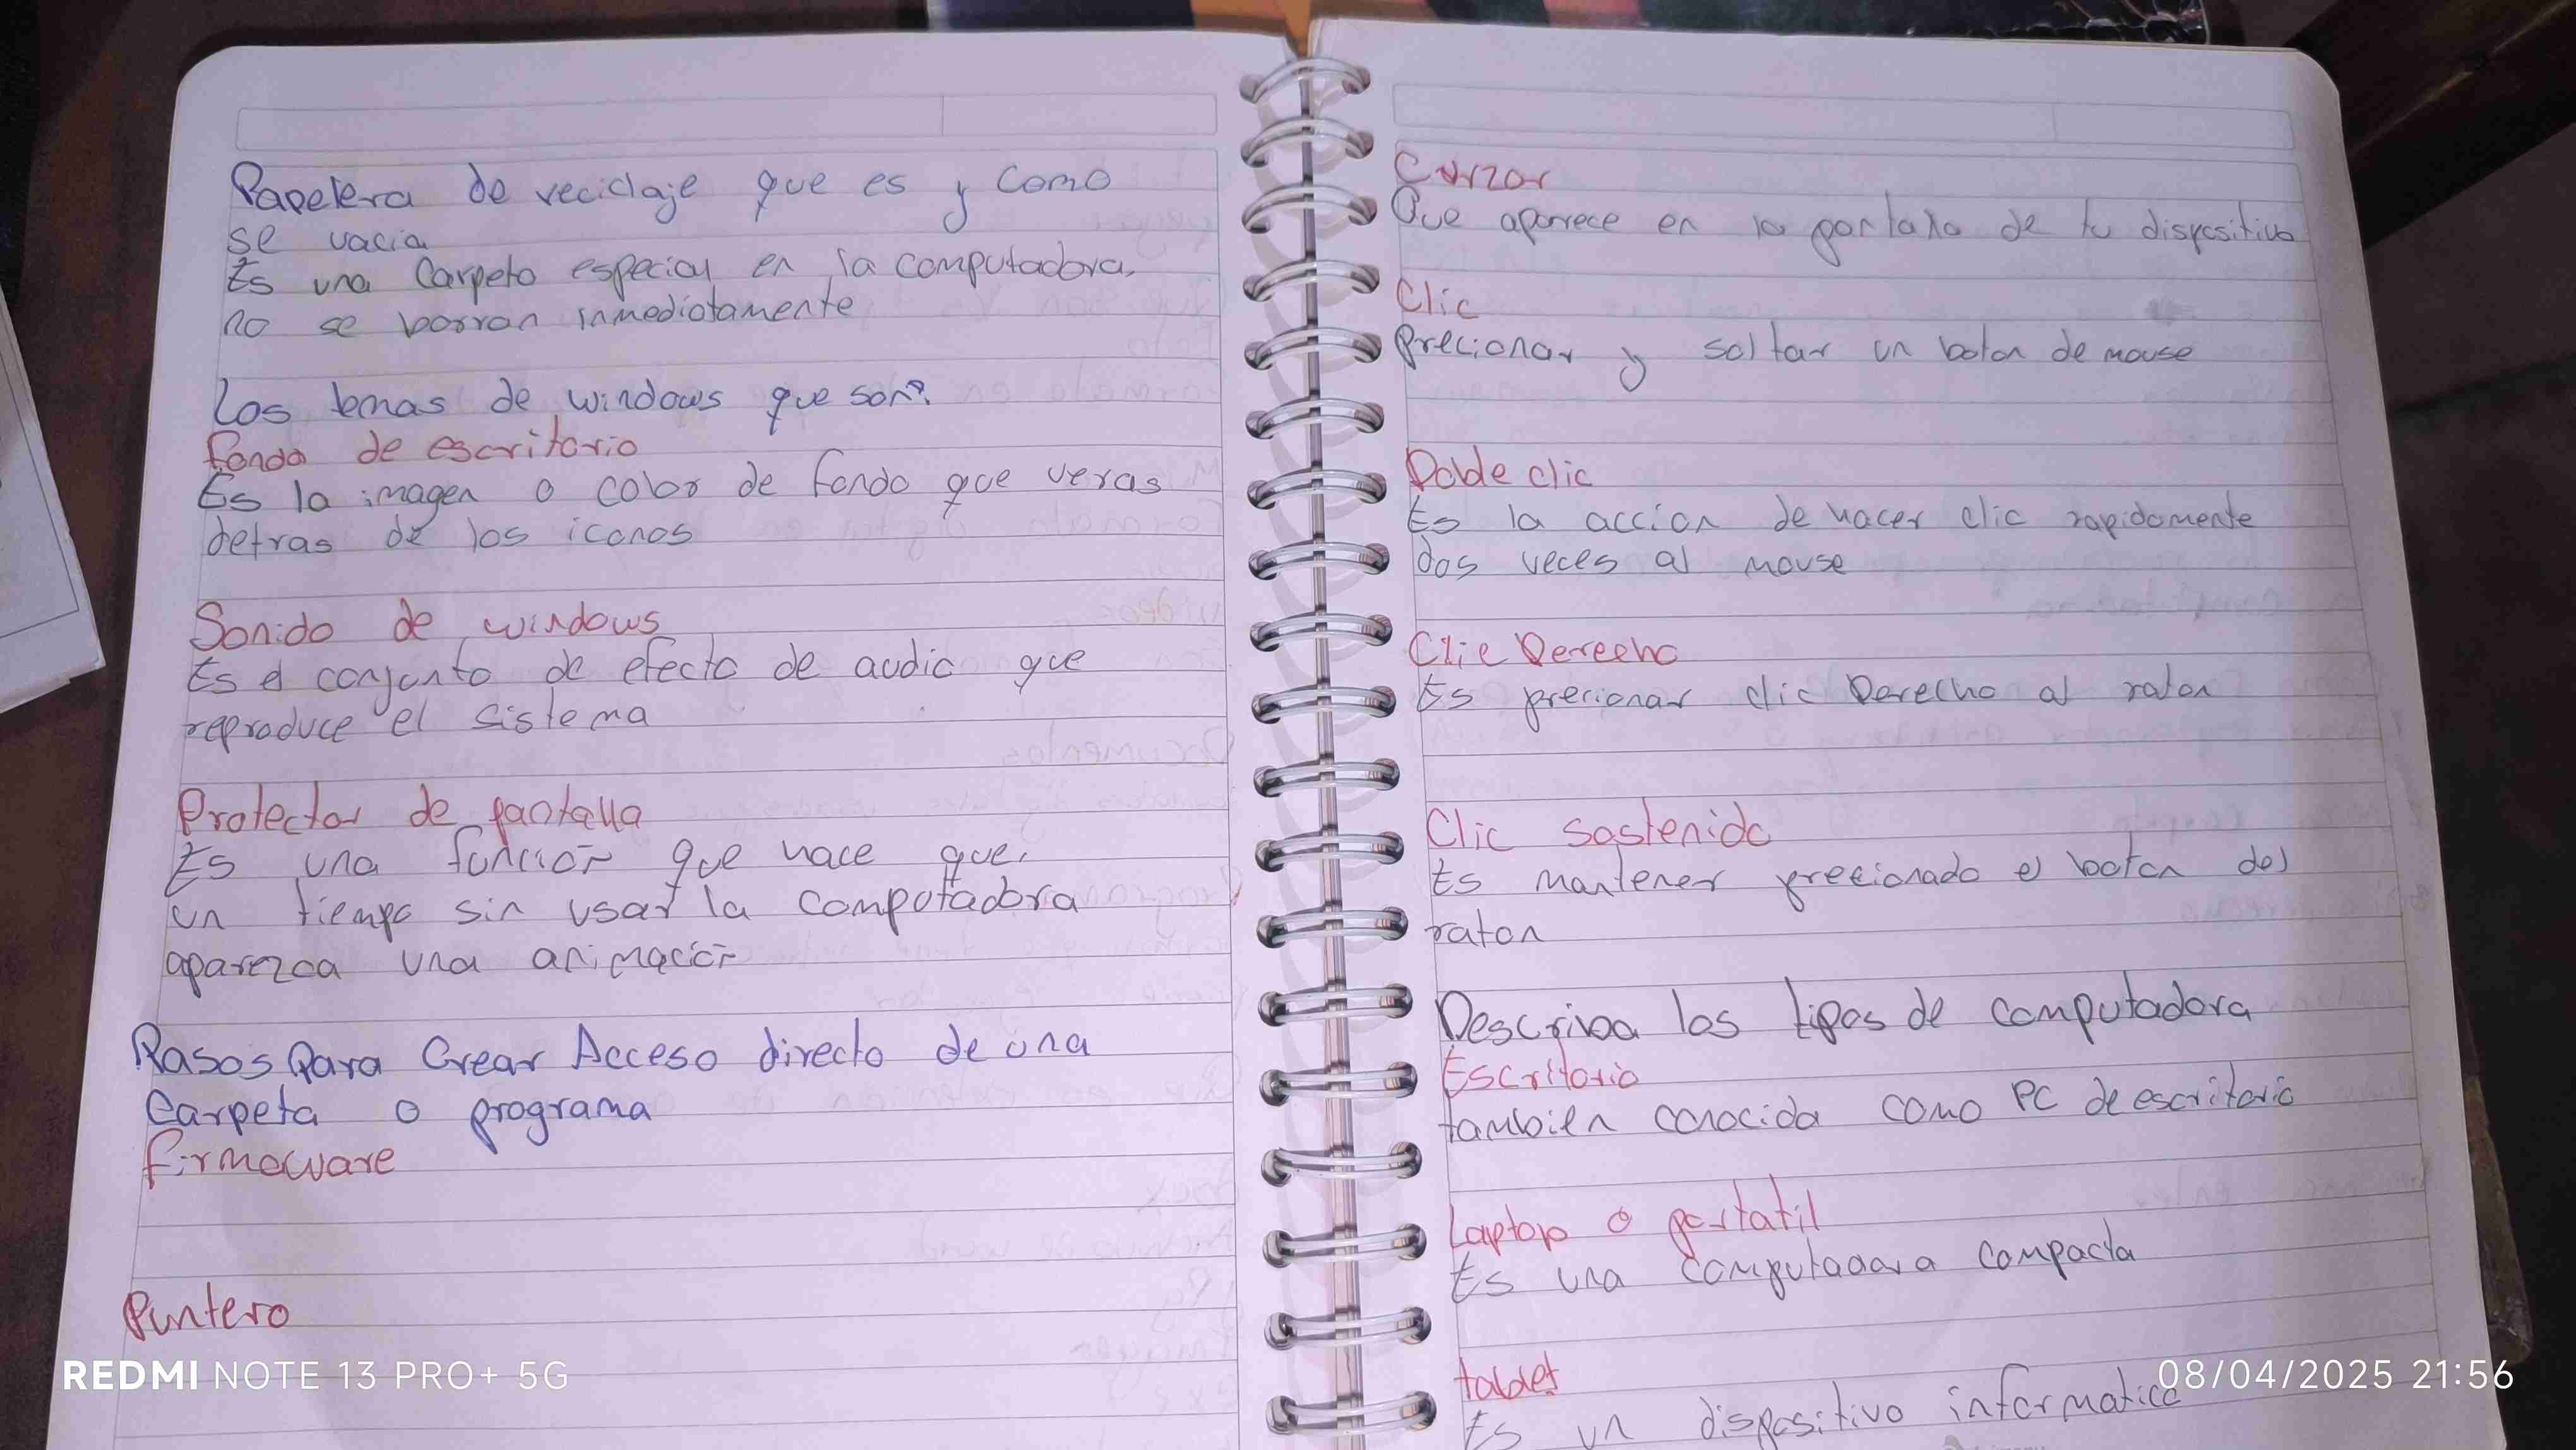 Papelera de reciclaje que es y como
se vacia
Es una Carpeta especial en la computadora,
no se borran inmediatamente
Los temas de windows que son?
fondo de escritorio
Es la imagen o color de fondo que veras
detras de los iconos
Sonido de windows
Es el conjunto de efecto de audio que
reproduce el sistema
Protector de pantalla
Es una función que hace que,
un tiempo sin usar la computadora
aparezca una animación
Pasos Para Crear Acceso directo de una
Carpeta o programa
firmaware
Puntero
REDMI NOTE 13 PRO+ 5G
Curzor
Que aparece en la pantalla de tu dispositivo
Clic
Precionar y soltar un boton de mouse
Doble clic
Es la accion de hacer clic rapidamente
dos veces al mouse
Clic Derecho
Es precionar clic Derecho al raton
Clic sostenido
Es mantener precionado el boton del
raton
Descriva los tipos de computadora
Escritorio
tambien conocida como PC de escritorio
Laptop o portatil
Es una computadora compacta
tablet
Es un dispositivo informatico
08/04/2025 21:56